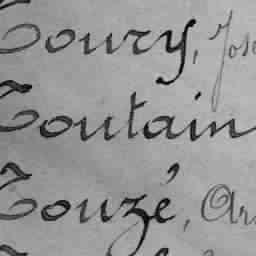 Toury, Jos
Toutain
Touzé, Ar